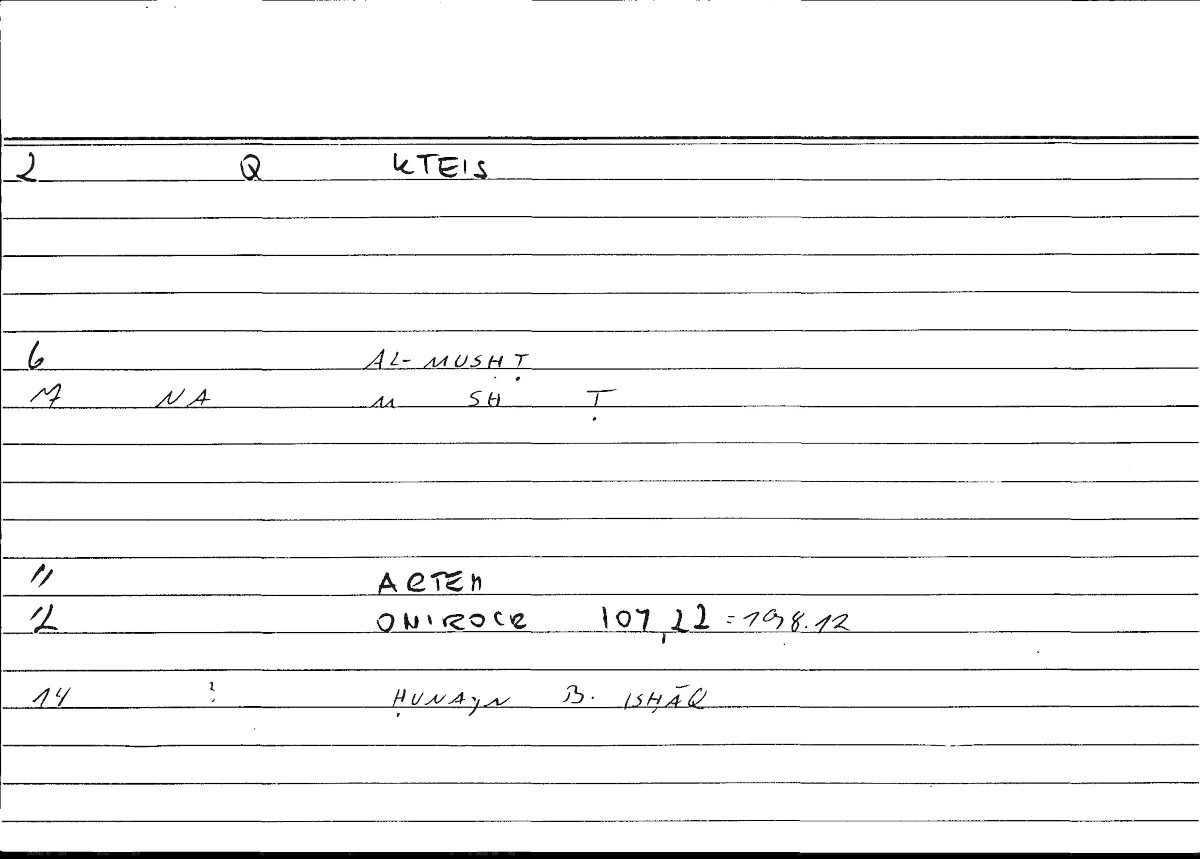 2 Q KTEIS
6 AL-MUSHṬ
7 NA M SH Ṭ
11 ARTEM
12 ONIROCR 107,22 = 198.12
14 ? ḤUNAYN B. ISḤĀQ